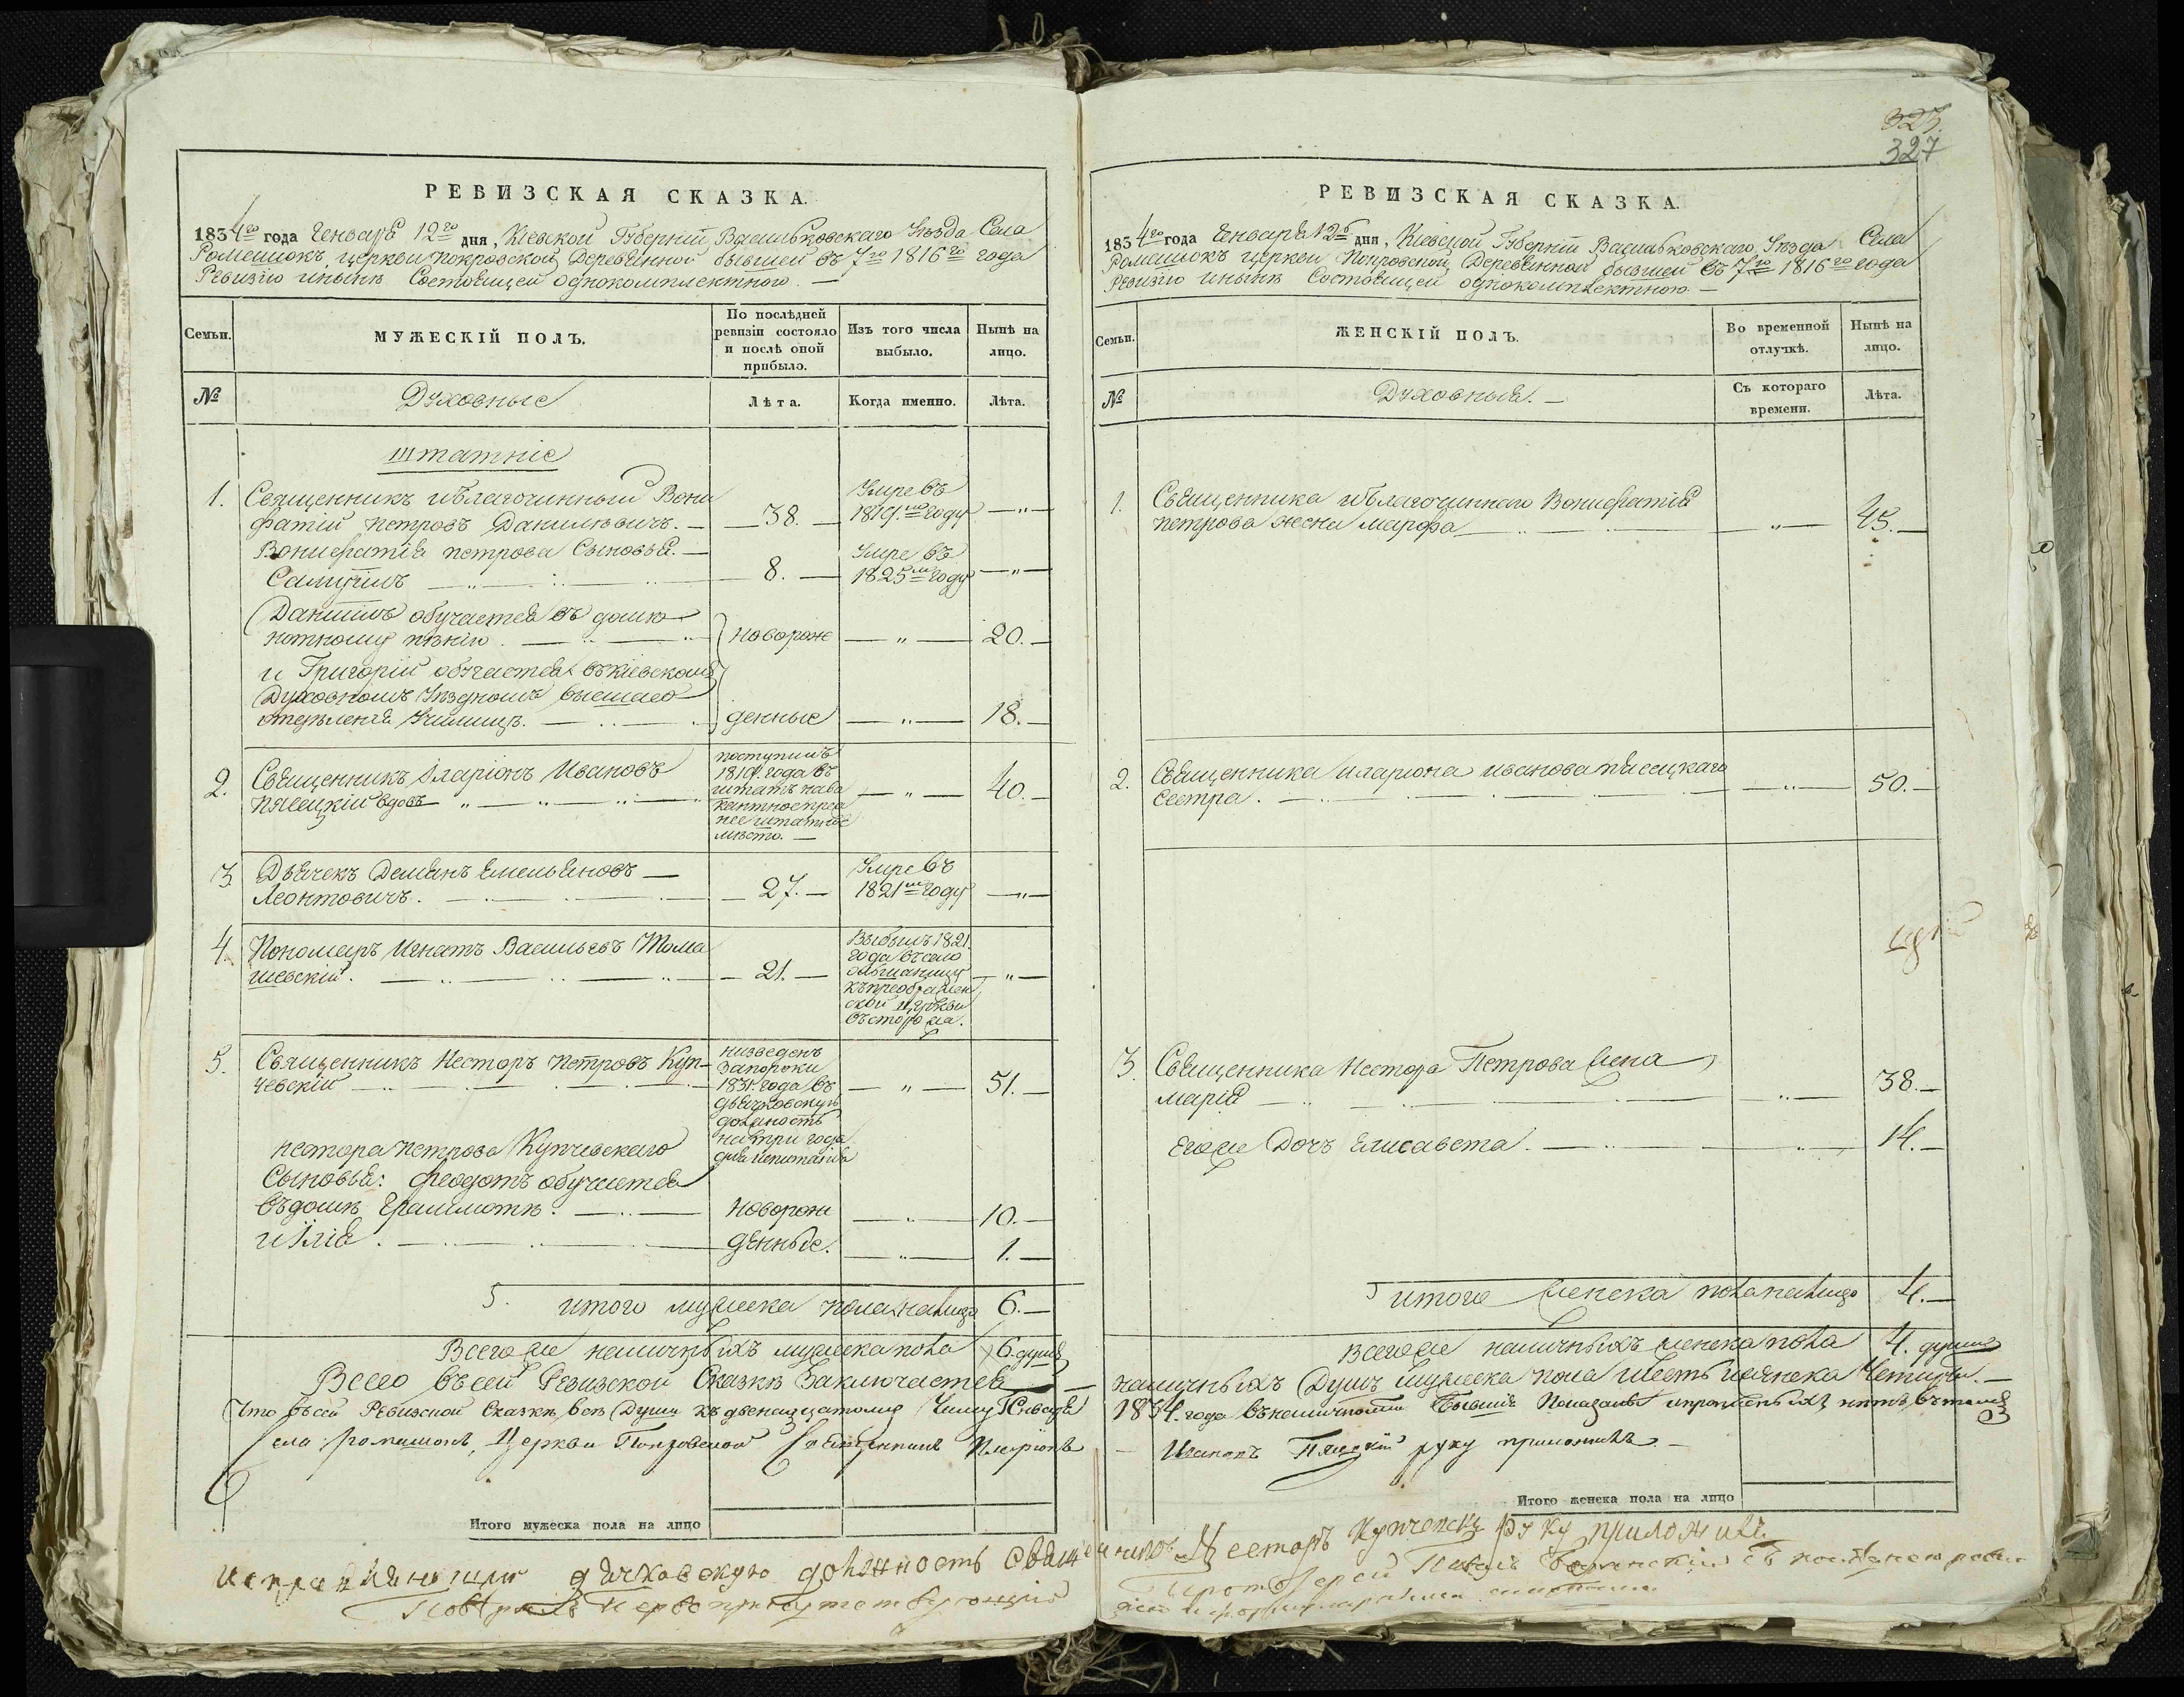 РЕВИЗСКАЯ СКАЗКА.
1834го года Генваря 12го дня, Кіевской Губерніи Васильковскаго Уѣзда Села
Ромашокъ церкви покровской Деревянной бывшей въ 7ю 1816го года
Ревизію инынѣ Состоящей однокомплектною. —
Семьи.
МУЖЕСКІЙ ПОЛЪ.
По послѣдней
ревизіи состояло
и послѣ оной
прибыло.
Изъ того числа
выбыло.
Нынѣ на
лицо.
№
Духовные
Лѣта.
Когда именно.
Лѣта.
штатніе
1. Священникъ иблагочинный Вони
фатій петровъ Данилѣвичъ. — 38. — Умре въ 1819мъ году — " —
Вонифатія петрова Сыновья. —
Самуилъ 8. — Умре въ 1825мъ году — " —
Даніилъ обучается въ дому
нотному пѣнію. новорож — " — 20. —
и Григорій обучается въкіевскомъ
Духовномъ Уѣздномъ высшаго
отдѣленія Училищѣ. денные — " — 18. —
2. Священникъ Іларіонъ Ивановъ
Пясецкій вдовъ
поступилъ
1819. года въ
штатъ нава
кантное преж
нее штатное
мѣсто. —
— " — 40. —
3. Дьячекъ Демянъ Емельяновъ —
Леонтовичъ. — 27. — Умре въ 1821мъ году — " —
4. Пономарь Игнатъ Васильевъ Тома
шевскій. — 21. —
Выбылъ 1821.
года въсело
ольшаницу
къпреображен
ской церкви
въсторожа.
— " —
5. Священникъ Несторъ Петровъ Куп-
чевскій
низведенъ
Запороки
1831. года въ
дьячковскую
должность
натри года
для испытанія
— " — 51. —
нестора петрова Купчевскаго
Сыновья: феодотъ обучается
въдомѣ Граммотѣ. новорож — " — 10. —
и Ілія. денные. — " — 1. —
5. итого мужеска пола налицо 6. —
Всегоже наличныхъ мужеска пола 6. душъ
Всего въсей Ревизской Сказкѣ Заключается
Что въсей Ревизской Сказкѣ всѣ Души къ двенадцатому Числу Генваря
села Ромашокъ, Церкви Покровской Священникъ Иларіонъ
Итого мужеска пола на лицо
Исправляющій дячковскую должность Священникъ
325.
327
РЕВИЗСКАЯ СКАЗКА.
1834го года Генваря 12го дня, Кіевской Губерніи Васильковскаго Уѣзда Села
Ромашокъ церкви Покровской Деревянной бывшей въ 7ю 1816го года
Ревизію инынѣ Состоящей однокомплектною. —
Семьи.
ЖЕНСКІЙ ПОЛЪ.
Во временной
отлучкѣ.
Нынѣ на
лицо.
№
Духовныя. —
Съ котораго
времени.
Лѣта.
1. Священника иблагочиннаго Вонифатія
петрова жена марфа — " — 45. —
2. Священника иларіона иванова пясецкаго
Сестра. — " — 50. —
3. Священника Нестора Петрова жена
марія — " — 38. —
Егоже Дочъ Елисавета. — " — 14. —
итого женска пола налицо 4. —
всегоже наличныхъ женска пола 4. души
наличныхъ Душъ мужеска пола шесть иженска Четыри. —
1834. года въналичности Бывшіе Показаны ипрописныхъ нѣтъ вътомъ
Ивановъ Пясецкій руку приложилъ. —
Итого женска пола на лицо
Несторъ Купчевскій руку приложилъ